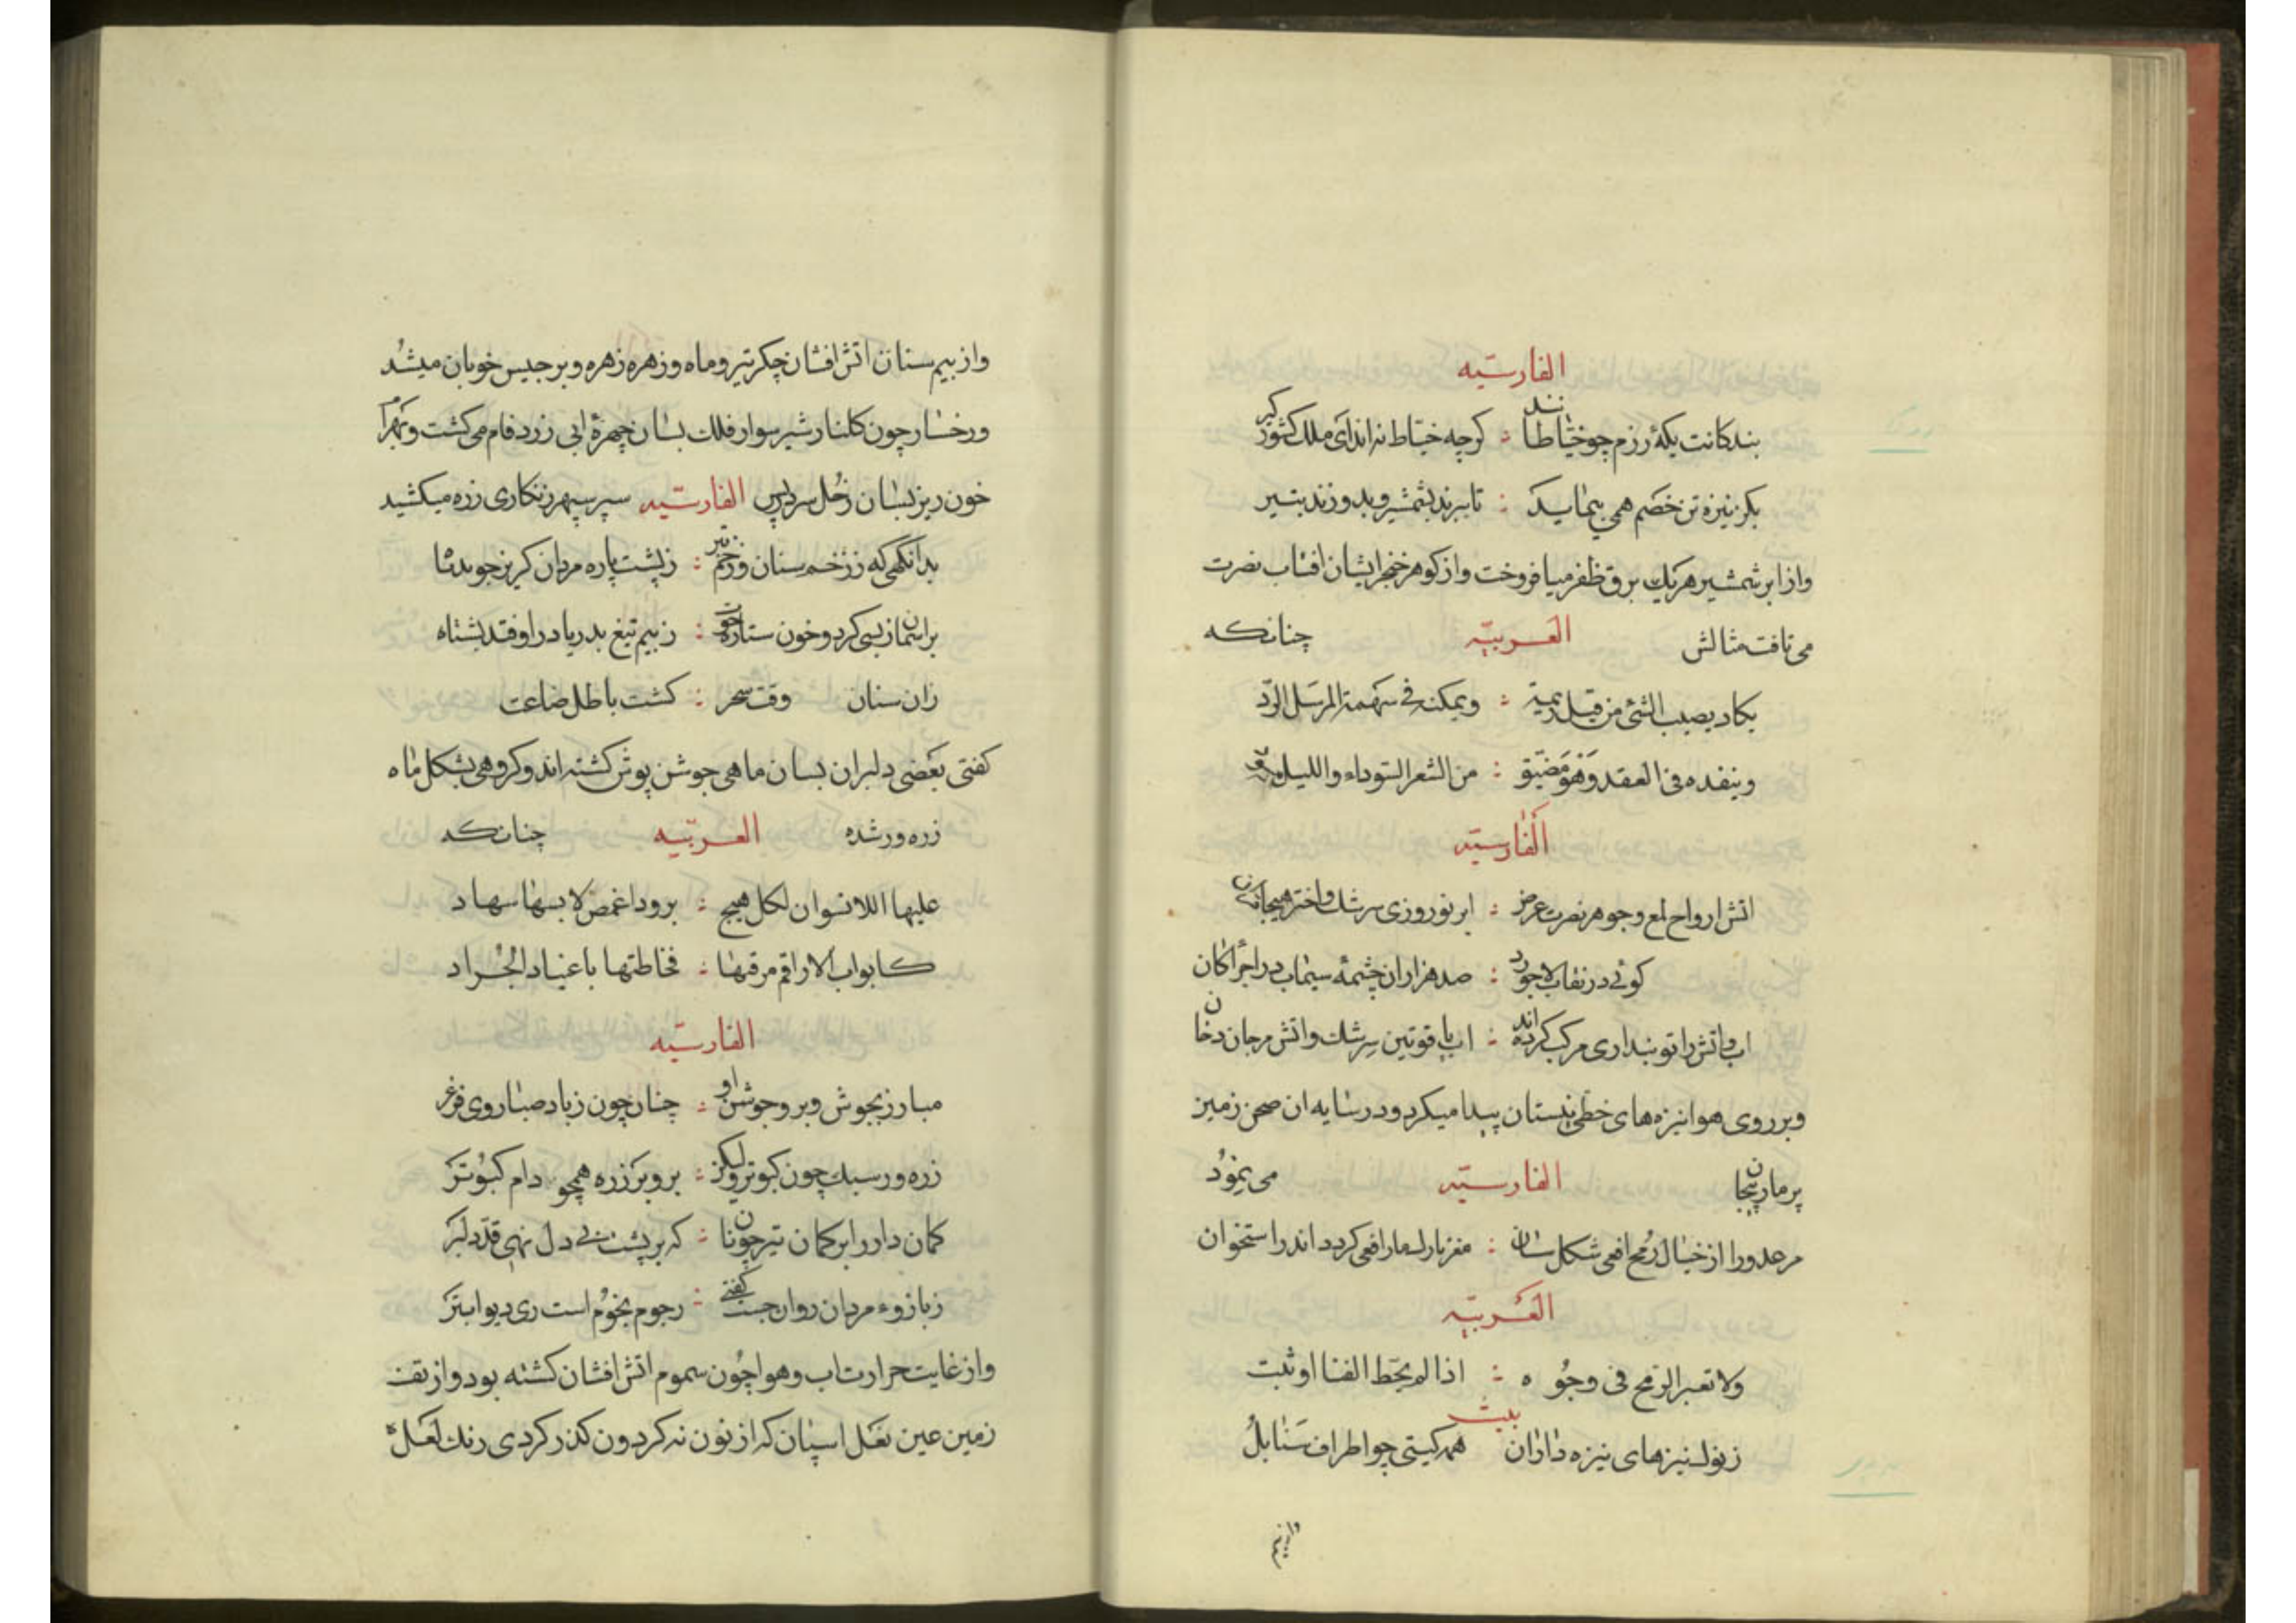 الفارسیّه
بندکانت بکهٔ رزم چو خیّاطانند ؛ کرچه خیّاط نه‌اند ای ملک کشورکیر
بکز نیزه تن خصم همی پیمایند ؛ تا ببرند بشمشیر و بدوزند بتیر
واز ابر شمشیر هریک برق ظفر میافروخت واز کوهر خنجر ایشان افتاب نصرت
می تافت مثالش العربیّه چنانکه
یکاد یصیب الشئ من قبل رمیه ؛ ویمکنه فی سهمه المرسل الردّ
وینفده فی العقد وَهو مَضیّق ؛ من الشعر السّوداء واللیل
اَلفارسیّه
اتش ارواح لمع وجوهر نصرت عرض ؛ ابر نوروزی سرشک واختر
کوئی در نقاب لاجورد ؛ صد هزاران چشمهٔ سیماب در اجزا کان
اب واتش را تو پنداری مرکب کرده اند ؛ اب یاقوتین سرشک واتش مرجان دخان
وبر روی هوا نیزه های خطی نیستان پیدا میکرد ودر سایه ان صحن زمین
پر مار پیجان الفارسیّه می نمود
مر عدو را از خیال رُمح افعی شکل شان ؛ مغز بار لسعار افعی کردد اندر استخوان
العَربیّه
ولا تعبر الرمح فی وجوُه ؛ اذا لم یخط القنا او ثبت
بیت
ز نوک نیزهای نیزه داران همه کیتی چو اطراف سَنابلُ
واز بیم
واز بیم سنان اتش افشان جکر تیر وماه وزهره زهره وبرجیس خوبان میشُد
ورخسار چون کلنار شیر سوار فلک بسان چهرهٔ ابی زرد فام می کشت وبهرام
خون ریز بسان زُحل سر در پس الفارسیّه سپر سپهر زنکاری زره میکشید
بدانکهی که ز زخم سنان وزخم تبر ؛ ز پشت پاره مردان کریز جوید
بر اسمان ز بسی کرد وخون ستاره ؛ ز بیم تیغ بدریا در اوفتد بشناه
زان سنان وقت سحر ؛ کشت باطل ضاعت
کفتی بعَضی دلبران بسان ماهی جوشن پوش کشته اند وکروهی بشکل ماه
زره ور شده العربیّه چنانکه
علیها اللانسوان لکل هیج ؛ برودا غمض لابسها سهاد
کابواب الاراقم مرقمها ؛ فخاطتها باعیاد الجُراد
الفارسیّه
مبارز بجوش وبر وجوشن او ؛ چنان چون ز باد صبا روی فرغر
زره ور سبک چون کبوتر ولیکز ؛ بر وبر زره همچو دام کبُوتر
کمان دار را بر کمان تیر چونان ؛ که بر پشت بی دل نهی قدّ دلبر
ز بازوء مردان روان جست کفتی ؛ رجوم نجوُم است ری دیو ابتر
واز غایت حرارت تاب وهوا چُون سموم اتش افشان کشته بود واز تف
زمین عین نعَل اسپان که از نون نه کردون کذر کردی رنک لعَل